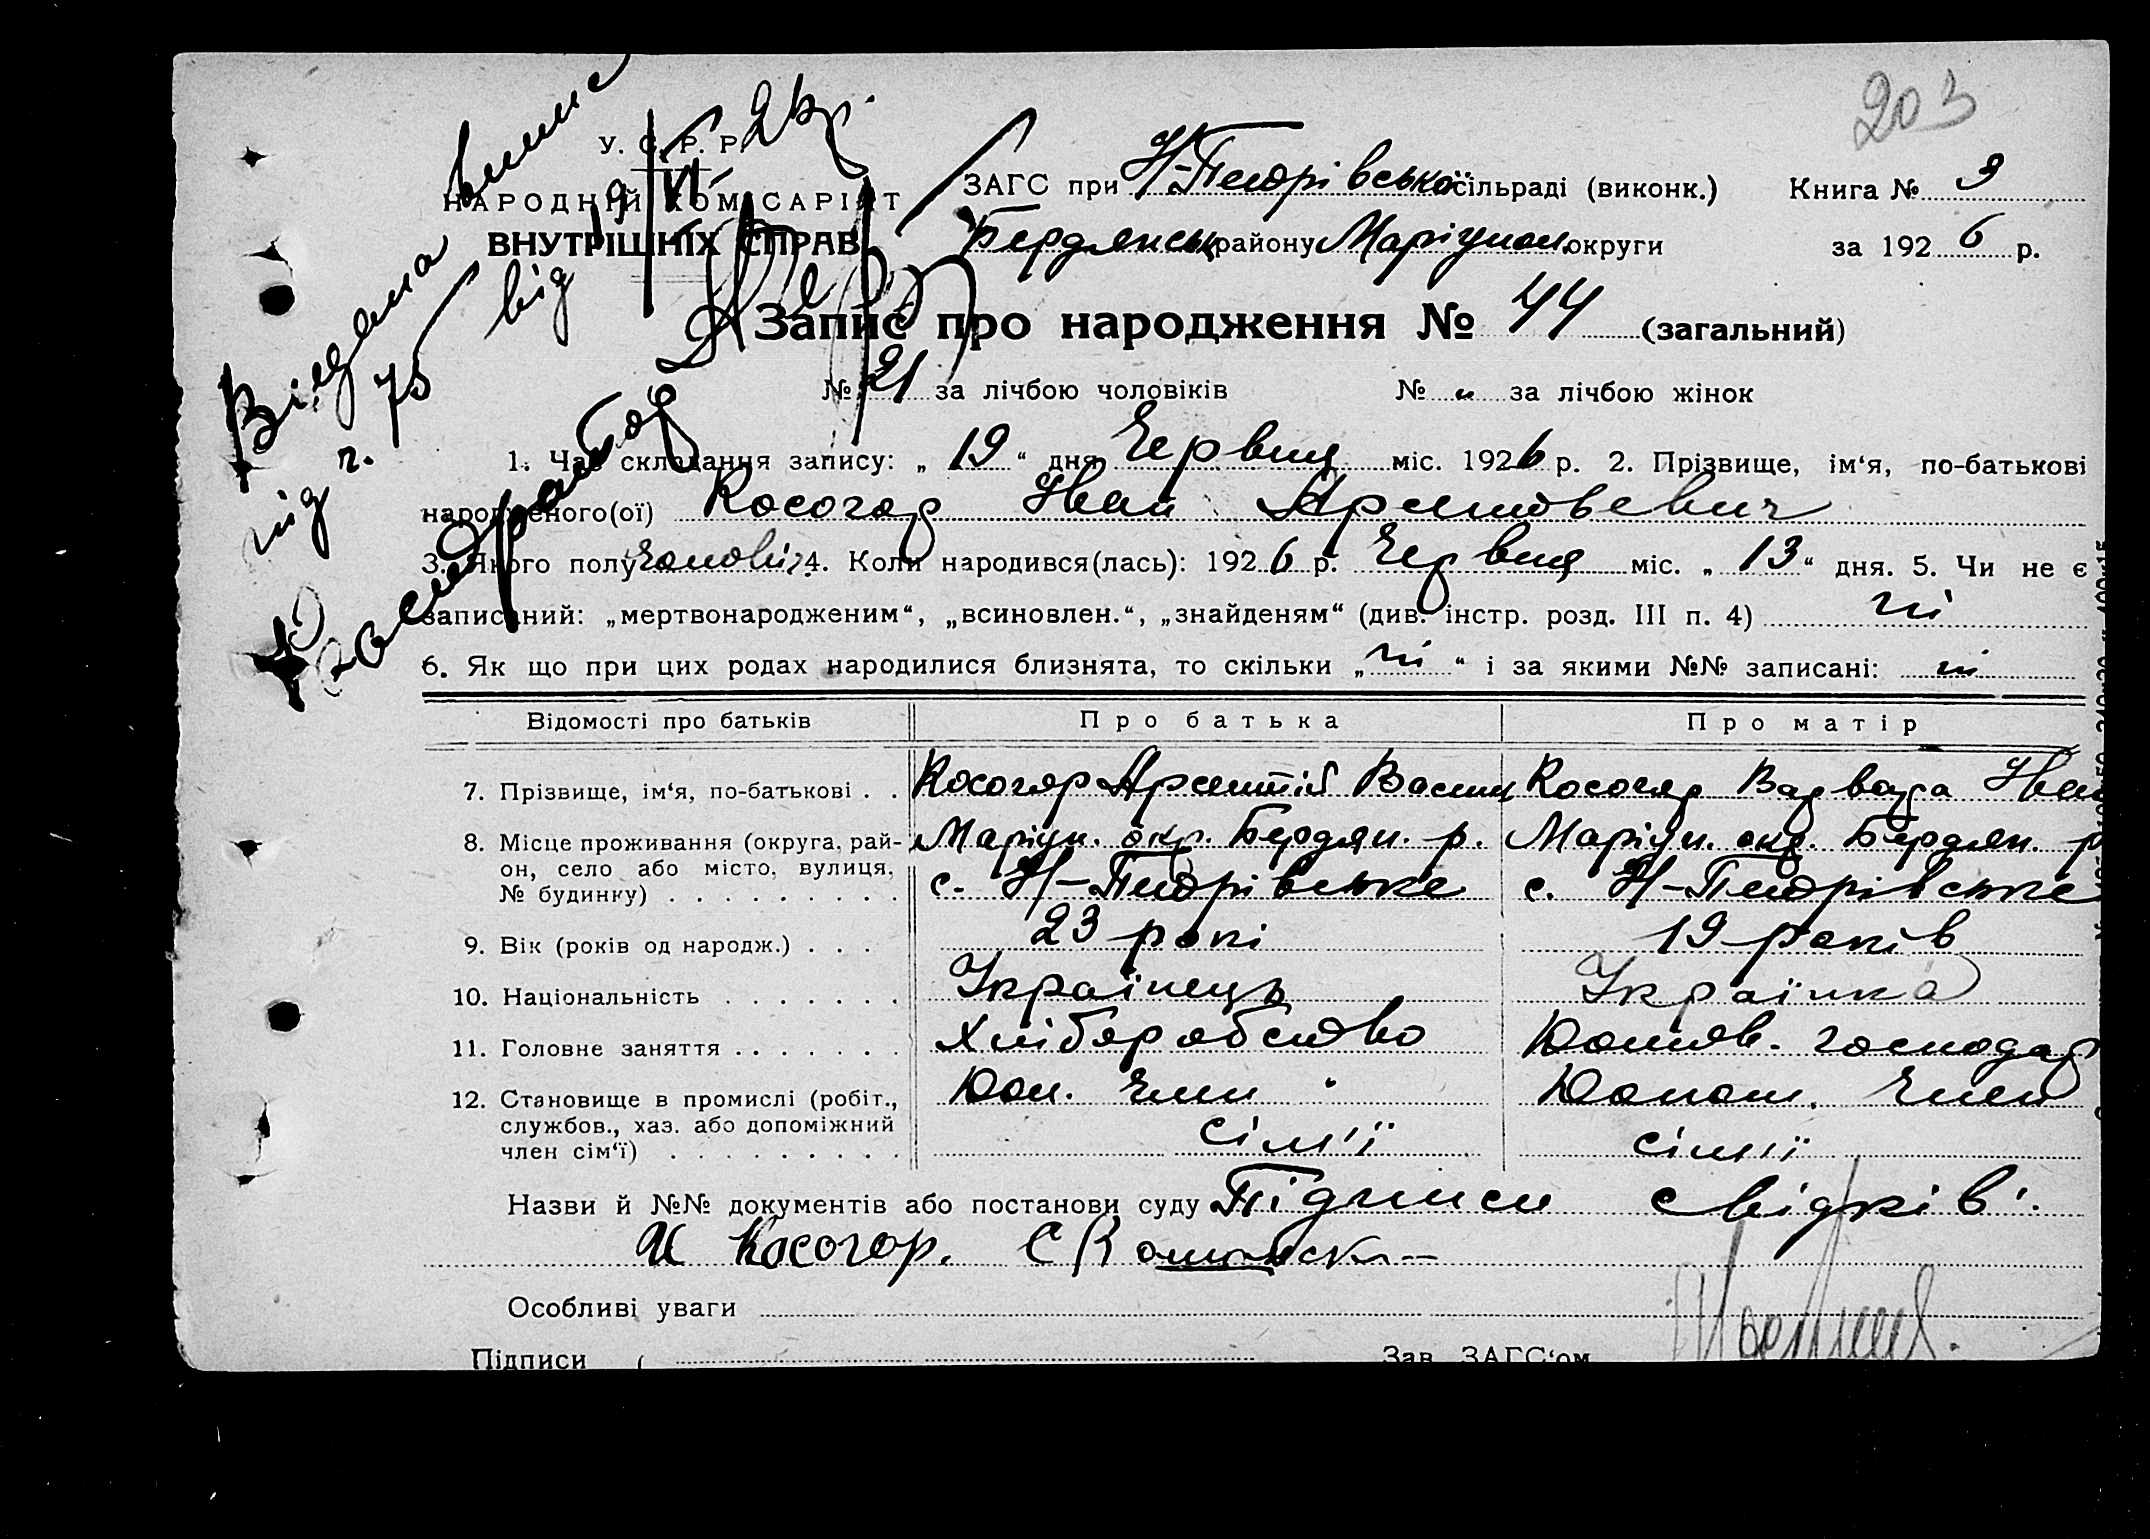 203
У. С. Р. Р.
НАРОДНІЙ КОМІСАРІЯТ
ВНУТРІШНІХ СПРАВ
Видана
під ч. 75 від
ЗАГС при Н-Петрівської сільраді (виконк.) Книга № 3
Бердянськ району Маріупол. округи за 1926 р.
Запис про народження № 44 (загальний)
№ 21 за лічбою чоловіків № „ за лічбою жінок
1. Час складання запису: „19“ дня Червня міс. 1926 р. 2. Прізвище, ім‘я, по-батькові
народженого(ої) Косогор Іван Арсентьевич
3. Якого полу чоловіч. 4. Коли народився(лась): 1926 р. Червня міс. „13“ дня. 5. Чи не є
записаний: „мертвонародженим“, „всиновлен.“, „знайденям“ (див. інстр. розд. III п. 4) ні
6. Як що при цих родах народилися близнята, то скільки „ні“ і за якими №№ записані: ні
Відомості про батьків Про батька Про матір
7. Прізвище, ім‘я, по-батькові . . Косогор Арсентій Васил Косогор Варвара Іван
8. Місце проживання (округа, рай- Маріуп. окр. Бердян. р. Маріуп. окр. Бердян. р
он, село або місто, вулиця, с. Н-Петрівське с. Н-Петрівське
№ будинку) . . . . . . . . .
9. Вік (років од народж.) . . . 23 рокі 19 років
10. Національність . . . . . . . Українець Українка
11. Головне заняття . . . . . . . Хліборобство Домов. господар
12. Становище в промислі (робіт., Доп. член Допом. член
службов., хаз. або допоміжний сім'ї сім'ї
член сім‘ї) . . . . . . . . .
Назви й №№ документів або постанови суду Підписи свідків:
И Косогор.
Особливі уваги
Підписи ( Зав. ЗАГС‘ом